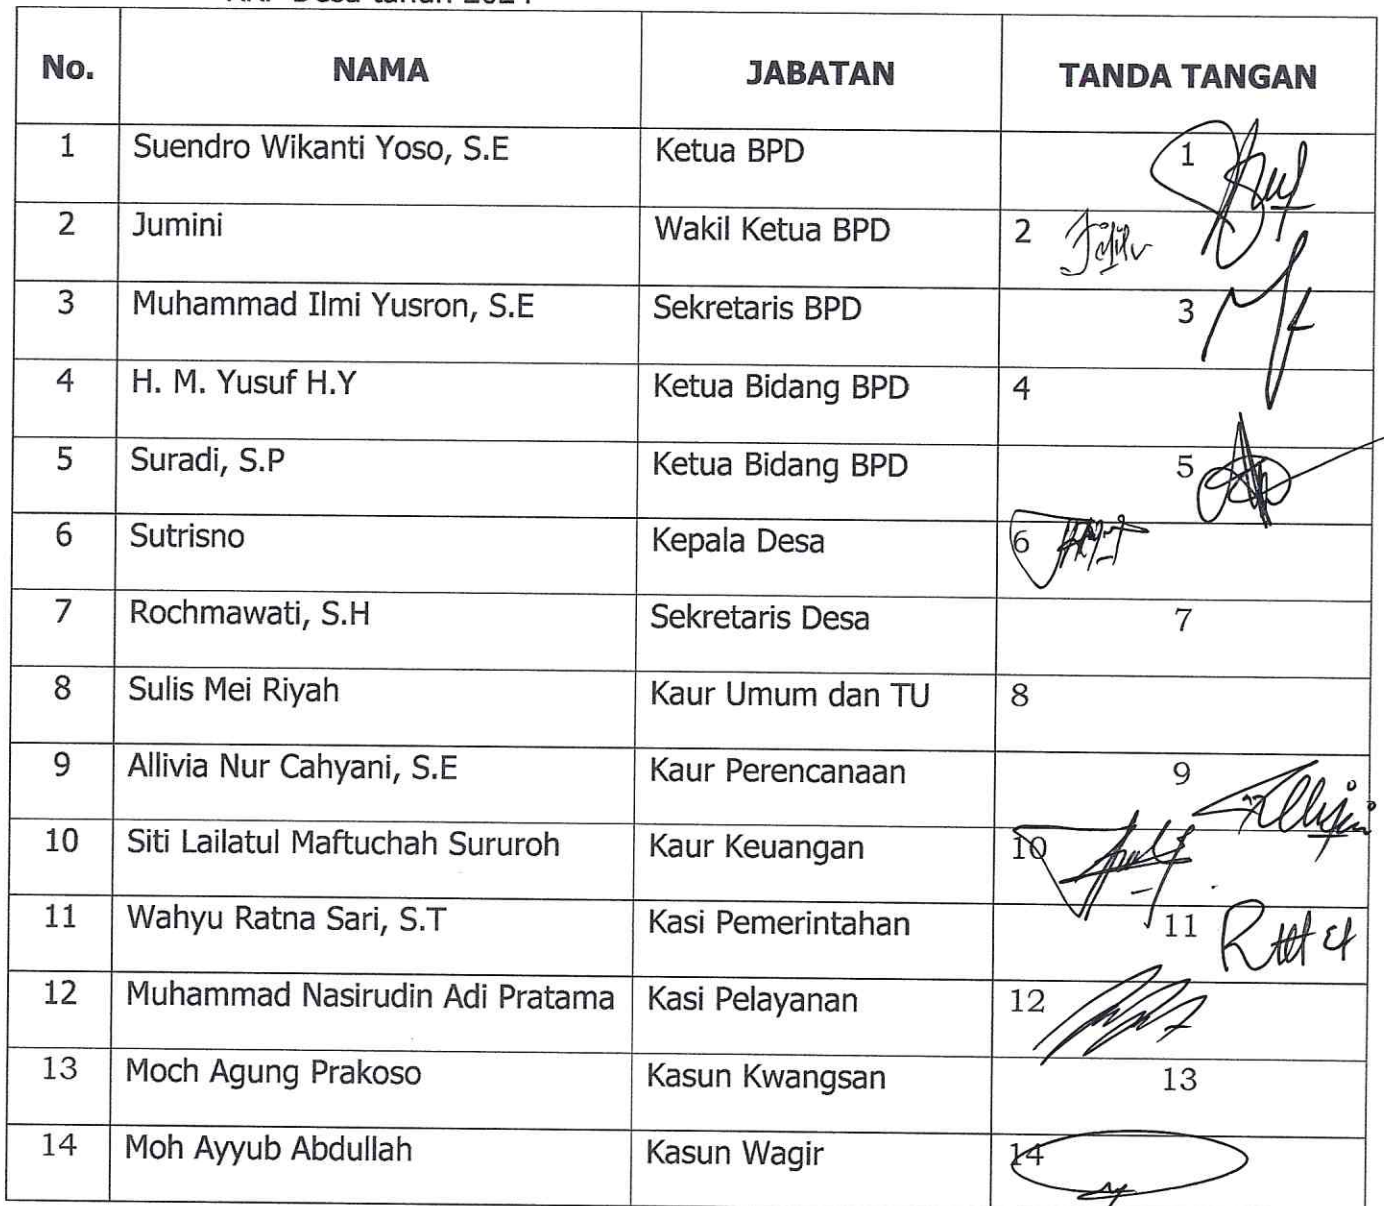 Desa tahun 2024
No. NAMA JABATAN TANDA TANGAN
1 Suendro Wikanti Yoso, S.E Ketua BPD 1
2 Jumini Wakil Ketua BPD 2
3 Muhammad Ilmi Yusron, S.E Sekretaris BPD 3
4 H. M. Yusuf H.Y Ketua Bidang BPD 4
5 Suradi, S.P Ketua Bidang BPD 5
6 Sutrisno Kepala Desa 6
7 Rochmawati, S.H Sekretaris Desa 7
8 Sulis Mei Riyah Kaur Umum dan TU 8
9 Allivia Nur Cahyani, S.E Kaur Perencanaan 9
10 Siti Lailatul Maftuchah Sururoh Kaur Keuangan 10
11 Wahyu Ratna Sari, S.T Kasi Pemerintahan 11
12 Muhammad Nasirudin Adi Pratama Kasi Pelayanan 12
13 Moch Agung Prakoso Kasun Kwangsan 13
14 Moh Ayyub Abdullah Kasun Wagir 14